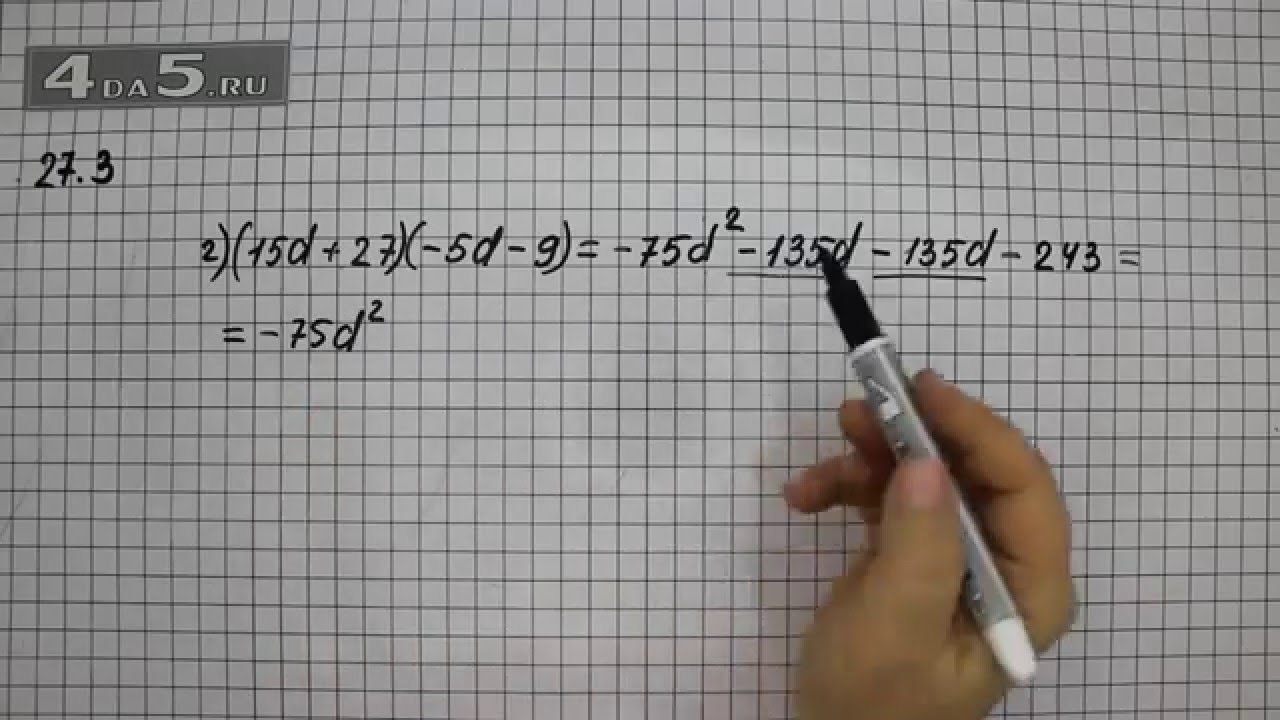 4DA5.RU
27.3
2)(15d+27)(-5d-9)= -75d² -135d -135d - 243 =
= -75d²